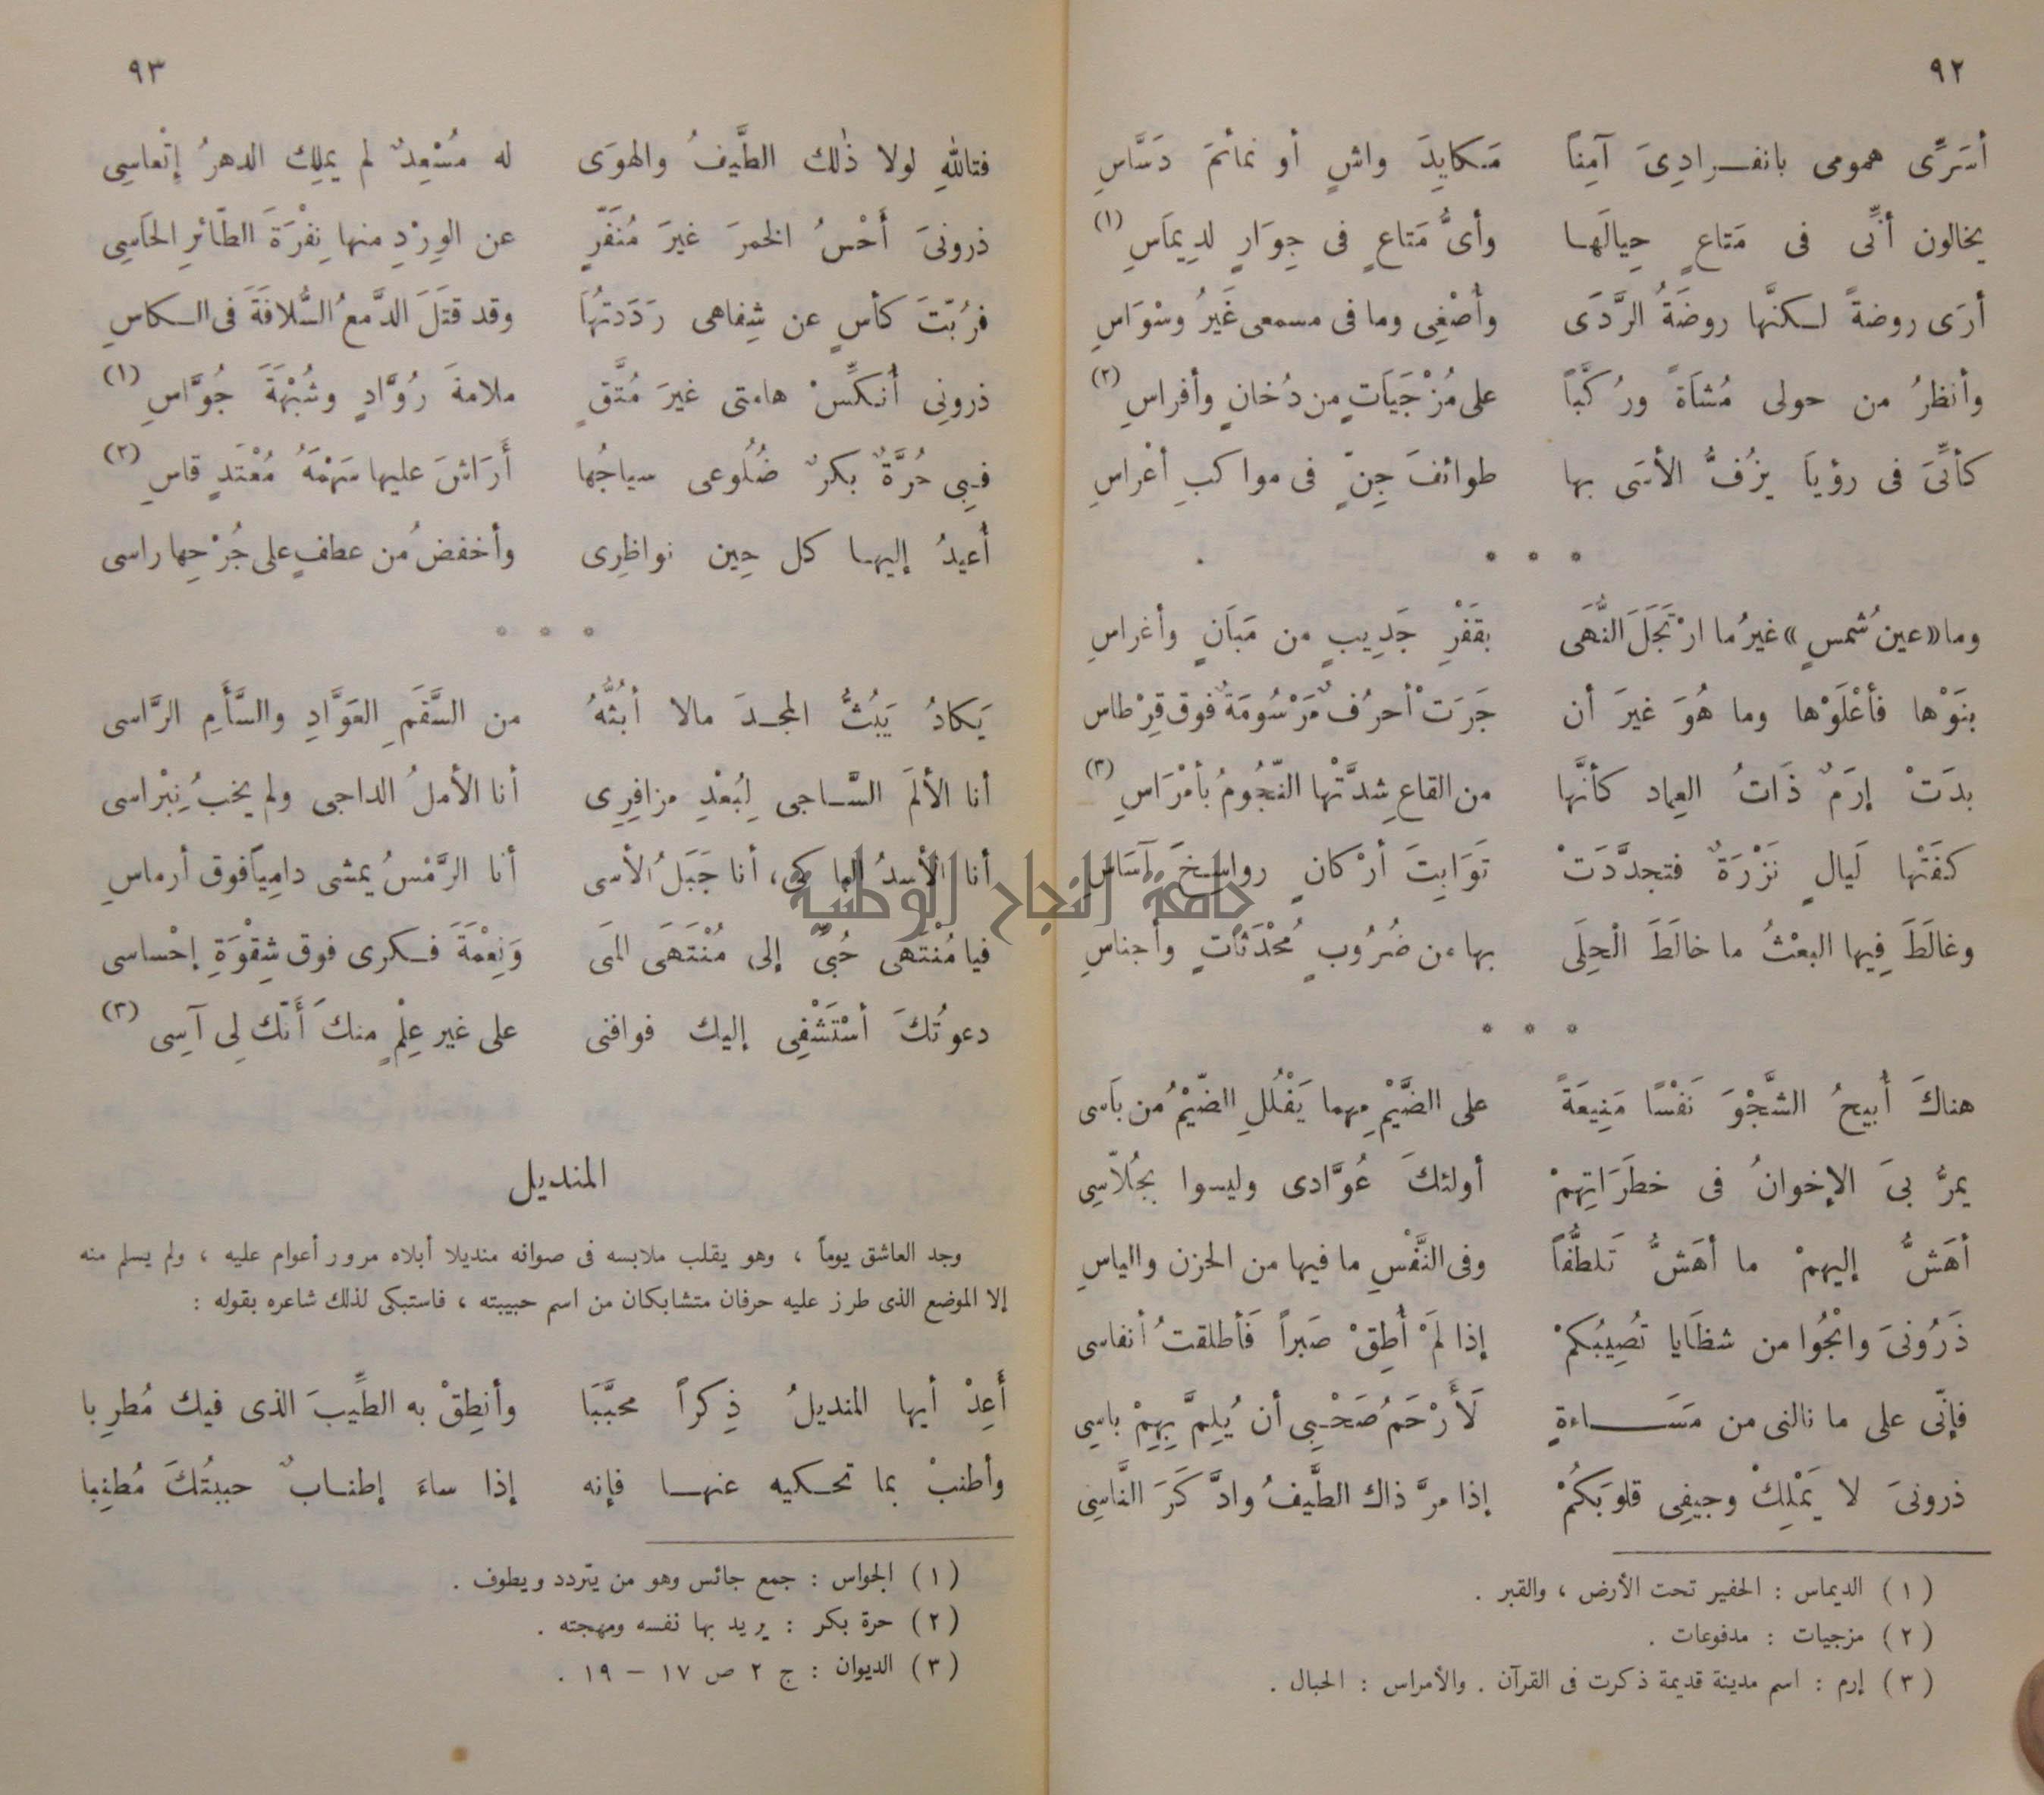 ٩٢
أسَرِّى همومى بانفـرادِىَ آمِناً مَكايِدَ واشٍ أو نمائمَ دَسَّاسِ
يخالون أنِّى فى مَتاعٍ حِيالَها وأىُّ مَتاعٍ فى جِوَارٍ لدِيمَاسِ (١)
أرَى روضةً لكنَّها روضَةُ الرَّدَى وأُصْغِى وما فى مسمعى غَيرُ وسْوَاسِ
وأنظرُ من حولى مُشَاةً ورُكَّباً على مُزْجَيَاتٍ من دُخانٍ وأفراسِ (٢)
كأنِّىَ فى رؤياَ يزُفُّ الأسَى بها طوائفَ جِنٍّ فى مواكبِ أعْراسِ
* * *
وما «عينُ شمسٍ» غيرُ ما ارْتَجَلَ النُّهَى بقَفْرِ جَدِيبٍ من مَبَانٍ وأغراسِ
بنَوْها فأعْلَوْها وما هُوَ غيرَ أن جَرَتْ أحرُفٌ مَرْسُومَةٌ فوق قِرْطاسِ
بدَتْ إرَمٌ ذَاتُ العِمادِ كأنَّها من القاعِ شدَّتْها النّجُومُ بأمْرَاسِ (٣)
كفَتْها لَيالٍ نَزْرَةٌ فتجدَّدَتْ ثَوَابِتَ أرْكانٍ رواسِخَ آسَاسِ
وغالَطَ فِيها البعْثُ ما خالَطَ الْحِلَى بها من ضُرُوبٍ مُحْدَثَاتٍ وأجناسِ
* * *
هناكَ أُبيحُ الشَّجْوَ نَفْسًا مَنِيعَةً على الضَّيْمِ مهما يَفْلُلِ الضّيْمُ من بَاسى
يمرُّ بىَ الإخوانُ فى خطَرَاتِهِمْ أولئكَ عُوَّادى وليسوا بجُلاّسِى
أهَشُّ إليهمْ ما أهَشُّ تَلطُّفاً وفى النَّفْسِ ما فيها من الحزن والياسِ
ذَرُونىَ وانْجُوا من شظَايا تُصِيبُكمْ إذا لَمْ أُطِقْ صَبراً فَأطلقتُ أنفاسى
فإنّى على ما نالنى من مَسَـاءةٍ لَأَرْحَمُ صَحْبِى أن يُلِمَّ بِهِمْ باسِى
ذرونىَ لا يَمْلِكْ وجيفِى قلوبَكُمْ إذا مرَّ ذاك الطَّيفُ وادَّكَرَ النَّاسِى
(١) الديماس : الحفير تحت الأرض ، والقبر .
(٢) مزجيات : مدفوعات .
(٣) إرم : اسم مدينة قديمة ذكرت فى القرآن . والأمراس : الحبال .
٩٣
فتاللهِ لولا ذٰلك الطَّيفُ والهوَى له مُسْعِدٌ لم يملِك الدهرُ إتْعاسِى
ذرونىَ أَحْسُ الخمرَ غيرَ مُنَفّرٍ عن الوِرْدِ منها نِفْرَةَ الطّائرِ الحَاسِى
فرُبّتَ كأسٍ عن شِفاهى رَدَدتهُاَ وقد قتَلَ الدَّمعُ السُّلافَةَ فى الكاسِ
ذرونِى أُنكِّسْ هامتى غيرَ مُتَّقٍ ملامةَ رُوَّادٍ وشُبْهَةَ جُوَّاسِ (١)
فبِى حُرَّةٌ بكرٌ ضُلُوعى سياجُها أَرَاشَ عليها سَهْمَهُ مُعْتَدٍ قاسِ (٢)
أُعيدُ إليهـا كل حِين نواظِرِى وأخفضُ من عطفٍ على جُرْحِها راسى
* * *
يَكادُ يَبُثُّ المجـدَ مالا أبُثُّهُ من السَّقَمِ العَوَّادِ والسَّأَمِ الرَّاسى
أنا الألَمَ السَّـاجى لِبُعْدِ مزافِرِى أنا الأملُ الداجى ولم يخبُ نِبْراسى
أنا الأسدُ الباكى، أنا جَبَلُ الأسى أنا الرَّمْسُ يمشى دامِياً فوق أرماسِ
فيا مُنْتَهَى حُبّى إلى مُنْتَهَى المنَى وَنِعْمَةَ فـكرى فوق شِقْوَةِ إحْساسى
دعوتُكَ أسْتَشْفِى إليك فوافنى على غير عِلْمٍ منكَ أَنّك لِى آسِى (٣)
المنديل
وجد العاشق يوماً ، وهو يقلب ملابسه فى صوانه منديلا أبلاه مرور أعوام عليه ، ولم يسلم منه
إلا الموضع الذى طرز عليه حرفان متشابكان من اسم حبيبته ، فاستبكى لذلك شاعره بقوله :
أَعِدْ أيها المنديلُ ذِكراً محبَّبَا وأنطِقْ به الطِّيبَ الذى فيك مُطرِبا
وأطنبْ بما تحـكيه عنهـا فإنه إذا ساءَ إطنـابٌ حببتُكَ مُطنِبا
(١) الجواس : جمع جائس وهو من يتردد ويطوف .
(٢) حرة بكر : يريد بها نفسه ومهجته .
(٣) الديوان : ج ٢ ص ١٧ – ١٩ .
جامعة النجاح الوطنية